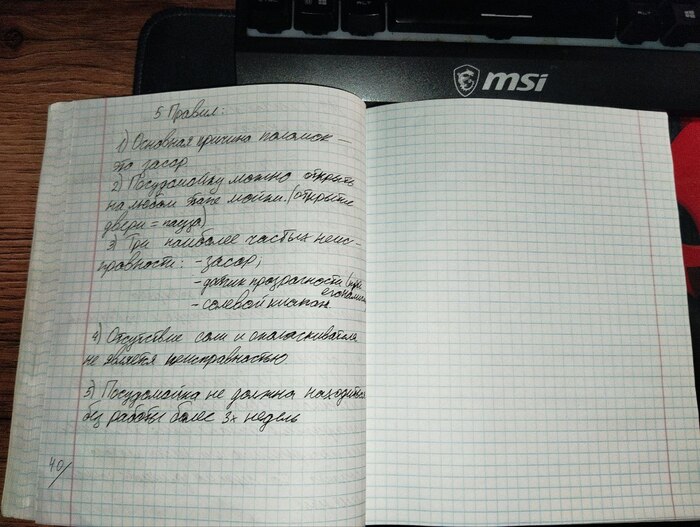 msi
5 Правил:
1) Основная причина поломок —
это засор
2) Посудомойку можно открыть
на любом этапе мойки. (открытие
двери = пауза)
3) Три наиболее частых неис-
правности: - засор,
- датчик прозрачности (при
его наличии)
- солевой клапан.
4) Отсутствие соли и ополаскивателя
не является неисправностью
5) Посудомойка не должна находиться
без работы более 3х недель
40/